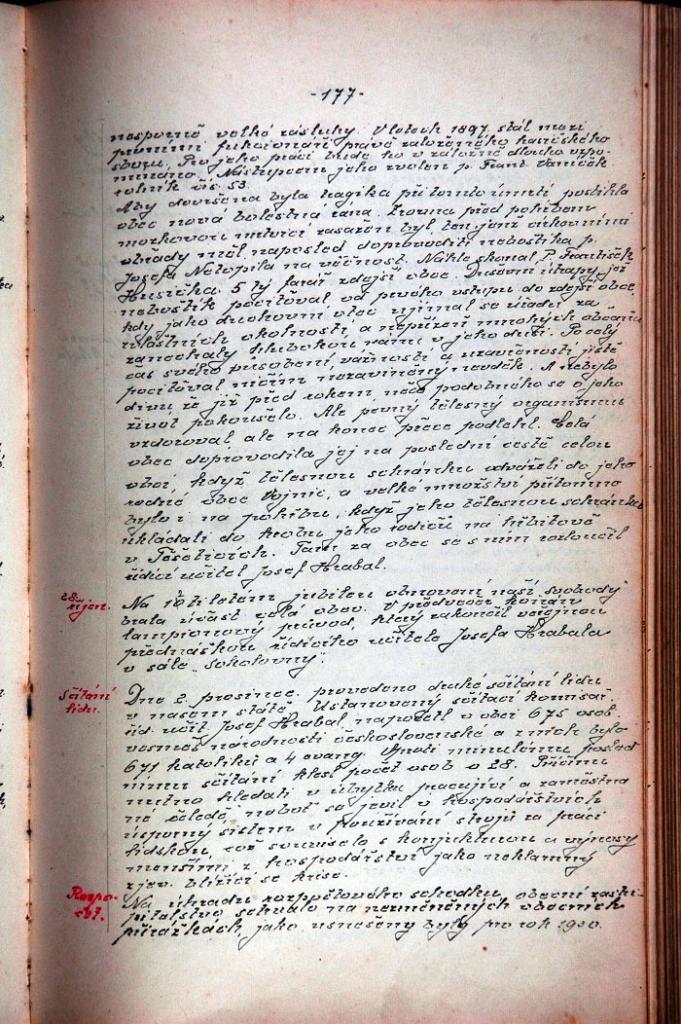 -177-
nesporně velké zásluhy. V letech 1897 stál mezi
prvními funkcionáři právě založeného hasičského
sboru. Pro jeho práci bude ho v záložně dlouho vzpo-
mínáno. Nástupcem jeho zvolen p. Frant. Vaníček
rolník čís. 53.
Aby dovršena byla tragika přítomto úmrtí postihla
obec nová bolestná rána. Zrovna před pohřbem
mrtvicí zasažen byl ten jenž církevními
obřady měl naposled doprovoditi nebožtíka p.
Josefa Netopila na věčnost. Náhle skonal P. František
Husička 5 tý farář zdejší obce. Duševní útrapy, jež
nebožtík pociťoval, od prvého vstupu do zdejší obce,
kdy jako duchovní otec ujímal se úřadu za
zvláštních okolností, a nepřízeň mnohých občanů
zanechaly hlubokou ránu v jeho duši. Po celý
čas svého působení, vážnosti a uzavřenosti jistě
pociťoval ničím nezaviněný nevděk. A nebylo
divu že již před rokem, něco podobného se o jeho
život pokoušelo. Ale pevný tělesný organismus
vzdoroval, ale na konec přece podlehl. Celá
obec doprovodila jej na poslední cestě celou
obcí, když tělesnou schránku odváželi do jeho
rodné obce Vojnic, a velké množství přítomno
bylo i na pohřbu, když jeho tělesnou schránku
ukládali do hrobu jeho rodičů na hřbitově
v Těšeticích. Tam za obec se s ním rozloučil
řídící učitel Josef Hrabal.
28.
říjen.
Na 10 tiletém jubileu obnovení naší svobody
brala účast celá obec. V předvečer konán
lampionový průvod, který zakončil veřejnou
přednáškou řídícího učitele Josefa Hrabala
v sále „Sokolovny".
Sčítání
lidu.
Dne 2. prosince provedeno druhé sčítání lidu
v našem státě. Ustanovený sčítací komisař
říd. učit. Josef Hrabal napočetl v obci 675 osob
vesměs národnosti československé a z nich bylo
671 katolíků a 4 evang. Proti minulému posled
nímu sčítání klesl počet osob o 28. Příčinu
nutno hledati v úbytku pracující a zaměstna
né čeledě, neboť se jevil v hospodářstvích
úsporný systém v používání strojů za práci
lidskou, což souviselo s konjukturou a výnosy
menšími z hospodářství jako neklamný
zjev blížící se krise.
Rozpo-
čet.
Na úhradu rozpočtového schodku obecní zastu-
pitelstvo setrvalo na nezměněných obecních
přirážkách, jako usneseny byly pro rok 1930.